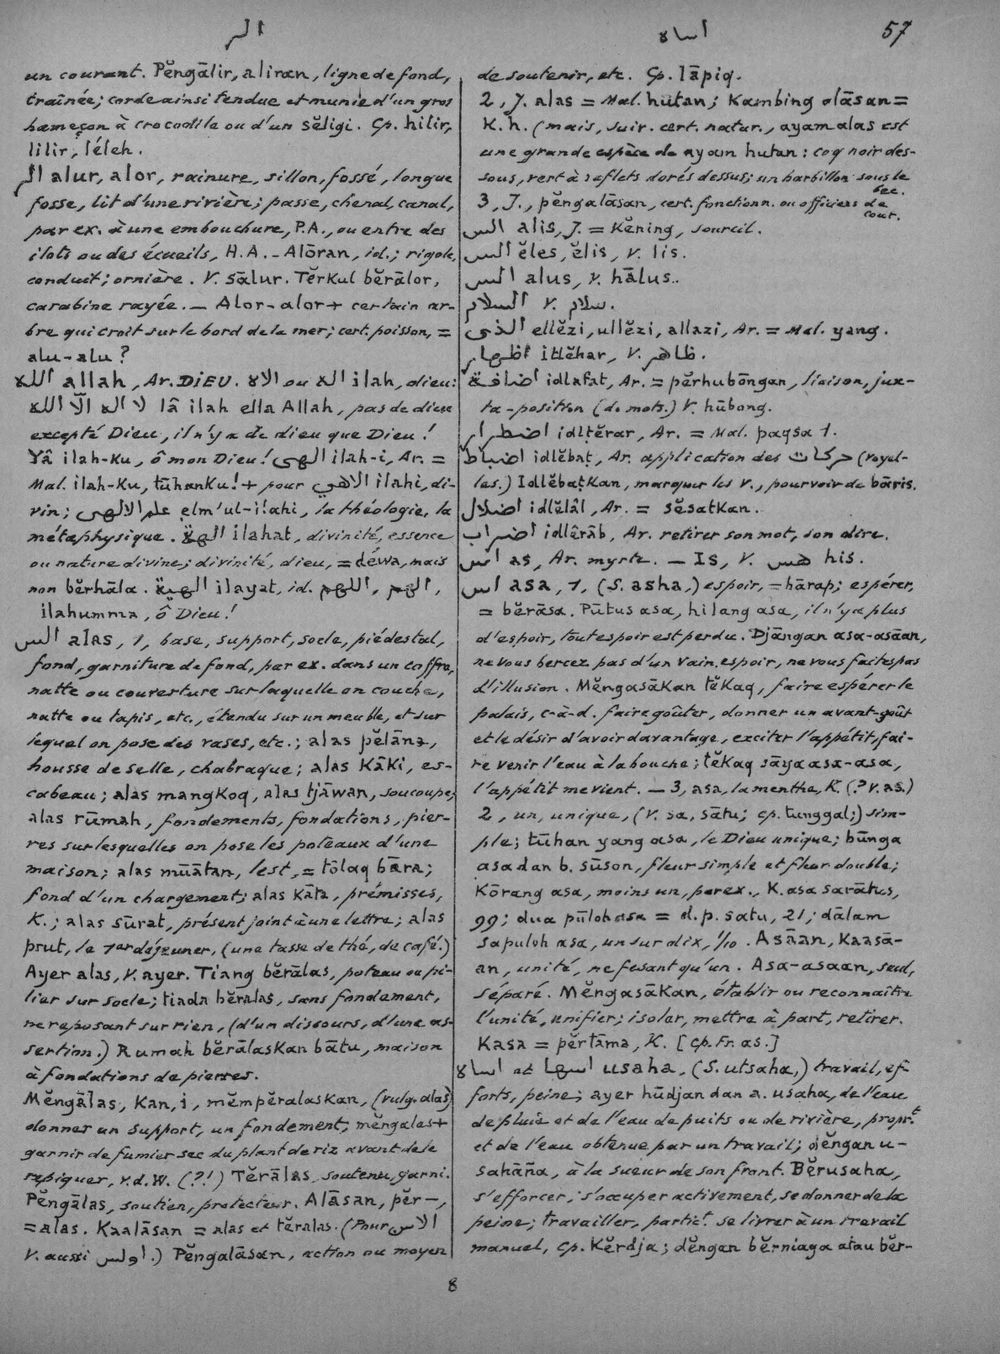 الر
اساه
57
un courant. Pĕngālir, aliran, ligne de fond,
traînée; corde ainsi tendue et munie d'un gros
hameçon à crocodile ou d'un sĕligi. Cp. hilir,
lilir, léleh.
الر alur, alor, rainure, sillon, fossé, longue
fosse, lit d'une rivière; passe, chenal, canal,
par ex. à une embouchure, P.A., ou entre des
ilots ou des écueils, H.A. - Alōran, id.; rigole,
conduit; ornière. V. sālur. Tĕrkul bĕrālor,
carabine rayée. — Alor-alor + certain ar-
bre qui croit sur le bord de la mer; cert. poisson, =
alu-alu?
الله allah, Ar. DIEU. الاه ou اله ilah, dieu:
لا اله الّا الله lâ ilah ella Allah, pas de dieu
excepté Dieu, il n'y a de dieu que Dieu!
Yâ ilah-Ku, ô mon Dieu! الهى ilah-i, Ar. =
Mal. ilah-Ku, tūhanKu! + pour الاهي ilahi, di-
vin; علم الالهى elm'ul-ilahi, la théologie, la
métaphysique. الهة ilahat, divinité, essence
ou nature divine; divinité, dieu, = déwa, mais
non bĕrhāla. الهية ilayat, id. اللهم, الهم,
ilahumma, ô Dieu!
الس alas, 1, base, support, socle, piédestal,
fond, garniture de fond, par ex. dans un coffre,
natte ou couverture sur laquelle on couche,
natte ou tapis, etc., étendu sur un meuble, et sur
lequel on pose des vases, etc.; alas pĕlāna,
housse de selle, chabraque; alas Kāki, es-
cabeau; alas mangKoq, alas tjāwan, soucoupe;
alas rūmah, fondements, fondations, pier-
res sur lesquelles on pose les poteaux d'une
maison; alas mūātan, lest, = tōlaq bāra;
fond d'un chargement; alas Kāta, prémisses,
K.; alas sūrat, présent joint à une lettre; alas
prut, le 1er déjeuner, (une tasse de thé, de café.)
Ayer alas, V. ayer. Tiang bĕrālas, poteau ou pi-
lier sur socle; tiada bĕralas, sans fondement,
ne reposant sur rien, (d'un discours, d'une as-
sertion.) Rumah bĕrālasKan bātu, maison
à fondations de pierres.
Mĕngālas, Kan, i, mĕmpĕralaskan, (vulg. alas)
donner un support, un fondement; mĕngalas +
garnir de fumier sec du plant de riz avant de le
repiquer, v.d.W. (?!) Tĕrālas, soutenu, garni.
Pĕngālas, soutien, protecteur. Alāsan, pĕr-,
= alas. Kaalāsan = alas et tĕralas. (Pour الاس
V. aussi اولس.) Pĕngalāsan, action ou moyen
de soutenir, etc. Cp. lāpiq.
2, J. alas = Mal. hutan; Kambing alāsan =
K.h. (mais, suiv. cert. natur., ayam alas est
une grande espèce de ayam hutan: coq noir des-
sous, vert à reflets dorés dessus; un barbillon sous le
bec.
3, J., pĕngalāsan, cert. fonctionn. ou officiers de
cour.
الس alis, J. = Kĕning, sourcil.
الس ĕles, ĕlis, V. lis.
الس alus, V. hālus.
السلام V. سلام.
الذى ellĕzi, ullĕzi, allazi, Ar. = Mal. yang.
اظهار itlĕhar, V. ظاهر.
اضافة idlafat, Ar. = pĕrhubōngan, liaison, jux-
ta-position (de mots.) V. hūbong.
اضطرار idltĕrar, Ar. = Mal. paqsa 1.
اضباط idlĕbaṭ, Ar. application des حركات (voyel-
les.) IdlĕbaṭKan, marquer les V., pourvoir de bāris.
اضلال idlĕlâl, Ar. = sĕsatKan.
اضراب idlĕrāb, Ar. retirer son mot, son dire.
اس as, Ar. myrte. — Is, V. هس his.
اس asa, 1, (S. asha,) espoir, = hārap; espérer,
= bĕrāsa. Pūtus asa, hilang asa, il n'y a plus
d'espoir, tout espoir est perdu. Djāngan asa-asāan,
ne vous bercez pas d'un vain espoir, ne vous faites pas
d'illusion. MĕngasāKan tĕKaq, faire espérer le
palais, c-à-d. faire goûter, donner un avant-goût
et le désir d'avoir davantage, exciter l'appétit, fai-
re venir l'eau à la bouche; tĕKaq sāya asa-asa,
l'appétit me vient. — 3, asa, la menthe, K. (? v. as.)
2, un, unique, (V. sa, sātu; cp. tunggal;) sim-
ple; tūhan yang asa, le Dieu unique; būnga
asa dan b. sūson, fleur simple et fleur double;
Kōrang asa, moins un, par ex., K. asa sarātus,
99; dua pūloh asa = d. p. satu, 21; dālam
sapuloh asa, un sur dix, 1/10. Asāan, Kaasā-
an, unité, ne fesant qu'un. Asa-asaan, seul,
séparé. MĕngasāKan, établir ou reconnaître
l'unité, unifier; isoler, mettre à part, retirer.
Kasa = pĕrtāma, K. [cp. Fr. as.]
اساه et اسها usaha, (S. utsaha,) travail, ef-
forts, peine; ayer hūdjan dan a. usaha, de l'eau
de pluie et de l'eau de puits ou de rivière, propr.t
et de l'eau obtenue par un travail; dĕngan u-
sahāña, à la sueur de son front. Bĕrusaha,
s'efforcer, s'occuper activement, se donner de la
peine; travailler, partic.t se livrer à un travail
manuel, cp. Kĕrdja; dĕngan bĕrniaga atau bĕr-
8